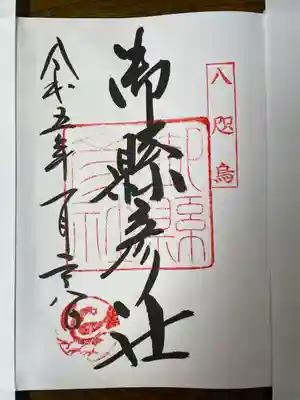 八咫烏
御縣彦社
令和五年一月二十八日